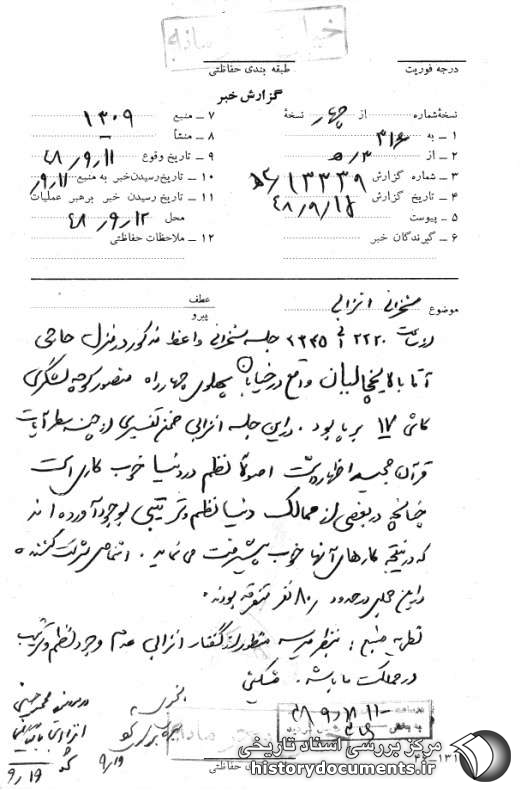 درجه فوریت
طبقه بندی حفاظتی
گزارش خبر
نسخهٔ شماره از چهار نسخهٔ
۱ ـ به ۳۱۶
۲ ـ از ۳ ه
۳ ـ شماره گزارش ۱۳۳۳۹
۴ ـ تاریخ گزارش
۵ ـ پیوست
۶ ـ گیرندگان خبر
۷ ـ منبع ۱۳۰۹
۸ ـ منشأ ـ
۹ ـ تاریخ وقوع ۴۸/۹/۱۱
۱۰ ـ تاریخ رسیدن خبر به منبع ۹/۱۱
۱۱ ـ تاریخ رسیدن خبر برهبر عملیات
محل ۴۸/۹/۱۲
۱۲ ـ ملاحظات حفاظتی
موضوع سخنرانی انزابی
عطف
پیرو
از ساعت ۲۲۲۰ الی جلسه سخنرانی واعظ مذکور در منزل حاجی
آقا بالا یخچالیان واقع در خیابان پهلوی چهارراه منصور کوچه لشگری
کاشی ۱۷ برپا بود. در این جلسه انزابی ضمن تفسیر از چند سطر آیات
قرآن مجید اظهار داشت اصولا نظم در دنیا خوب کاری است
چنانچه در بعضی از ممالک دنیا نظم و ترتیبی بوجود آورده اند
که در نتیجه کارهای آنها خوب پیشرفت می نماید. اشخاص شرکت کننده
در این مجلس در حدود ۸۰ نفر متفرقه بودند.
نظریه منبع: بنظر میرسه منظور از گفتار انزابی عدم وجود نظم و ترتیب
در مملکت ما باشد.
در پرونده محمد حسین
انزابی بایگانی
۹/۱۹
۹/۱۹
طبقه بندی حفاظتی
مرکز بررسی اسناد تاریخی
historydocuments.ir